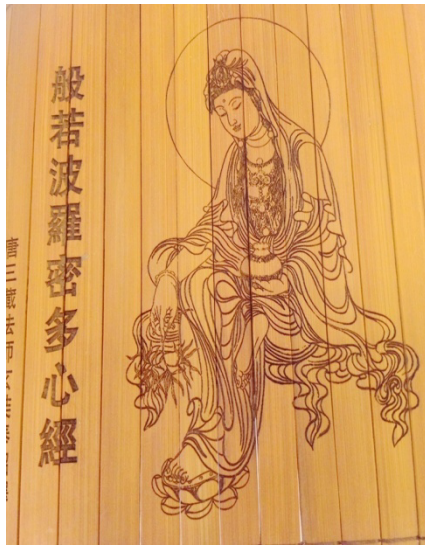 般若波羅密多心經
唐三藏法師玄奘